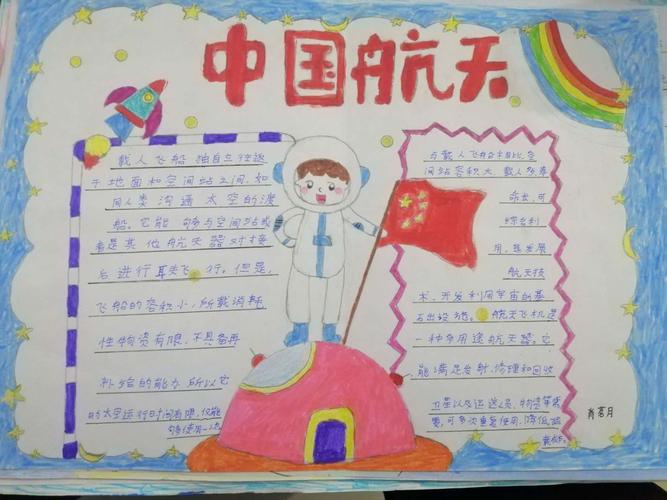 中国航天
载人飞船 独自立往返
于地面和空间站之间,如
同人类沟通太空的渡
船,它能够与空间站或
者是其他航天器对接
后进行耳关飞行。但是,
飞船的容积小,所载消耗
性物资有限,不具备再
补给的能力所以它
的太空运行时间有限,仅能
够使用一次
与载人飞船相比,空
间站容积大、载人
命长,可
综合利
用,是发展
航天技
术,开发利用宇宙的基
石出设施。航天飞机是
一种多用途航天器。它
能满足发射,修理和回收
卫星以及运送人员、物资等
需,可多次重复使用,降低
肖茗月